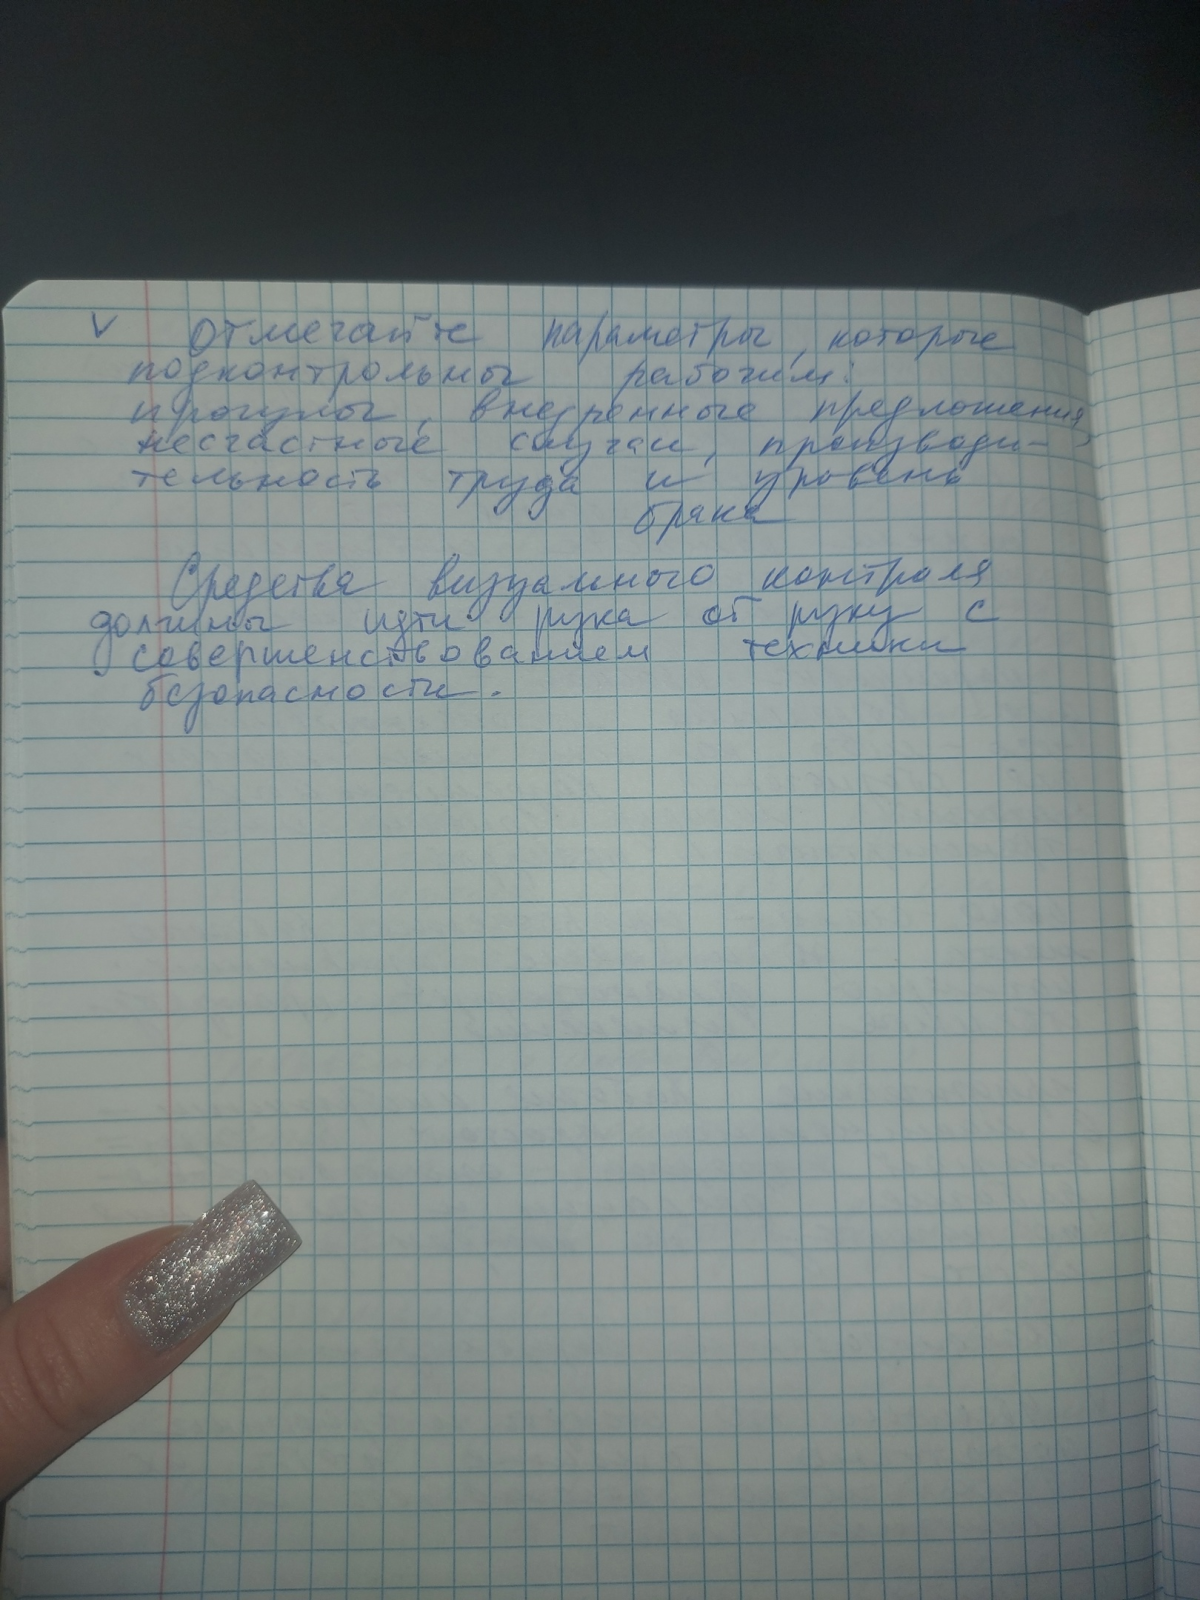 V Отмечайте параметры, которые
подконтрольны рабочим:
прогулы, внедренные предложения,
несчастные случаи, производи-
тельность труда и уровень
брака
Средства визуального контроля
должны идти рука об руку с
совершенствованием техники
безопасности.